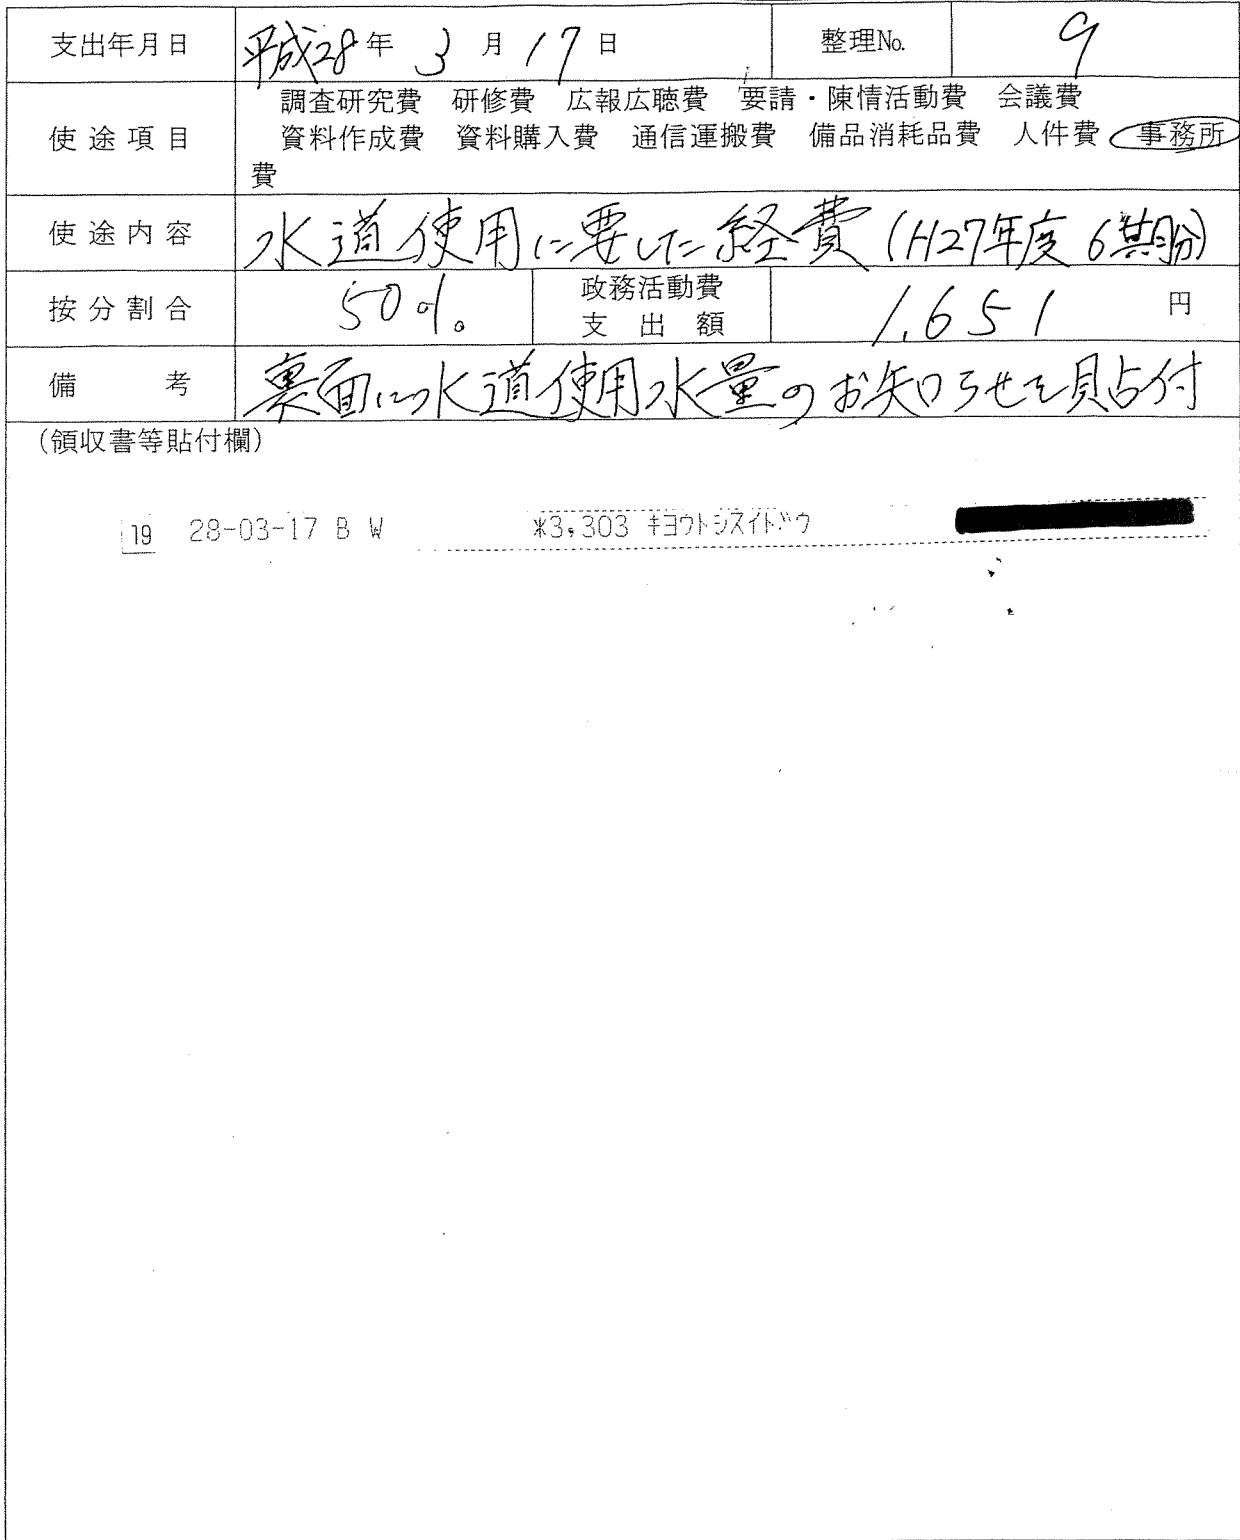 支出年月日 平成28年 3月 17日 整理No. 9
使途項目 調査研究費 研修費 広報広聴費 要請・陳情活動費 会議費
資料作成費 資料購入費 通信運搬費 備品消耗品費 人件費 事務所
費
使途内容 水道使用に要した経費(H27年度 6期分)
按分割合 50% 政務活動費支出額 1,651 円
備考 裏面に水道使用水量のお知らせを貼付
(領収書等貼付欄)
19 28-03-17 B W *3,303 キヨウトシスイドウ